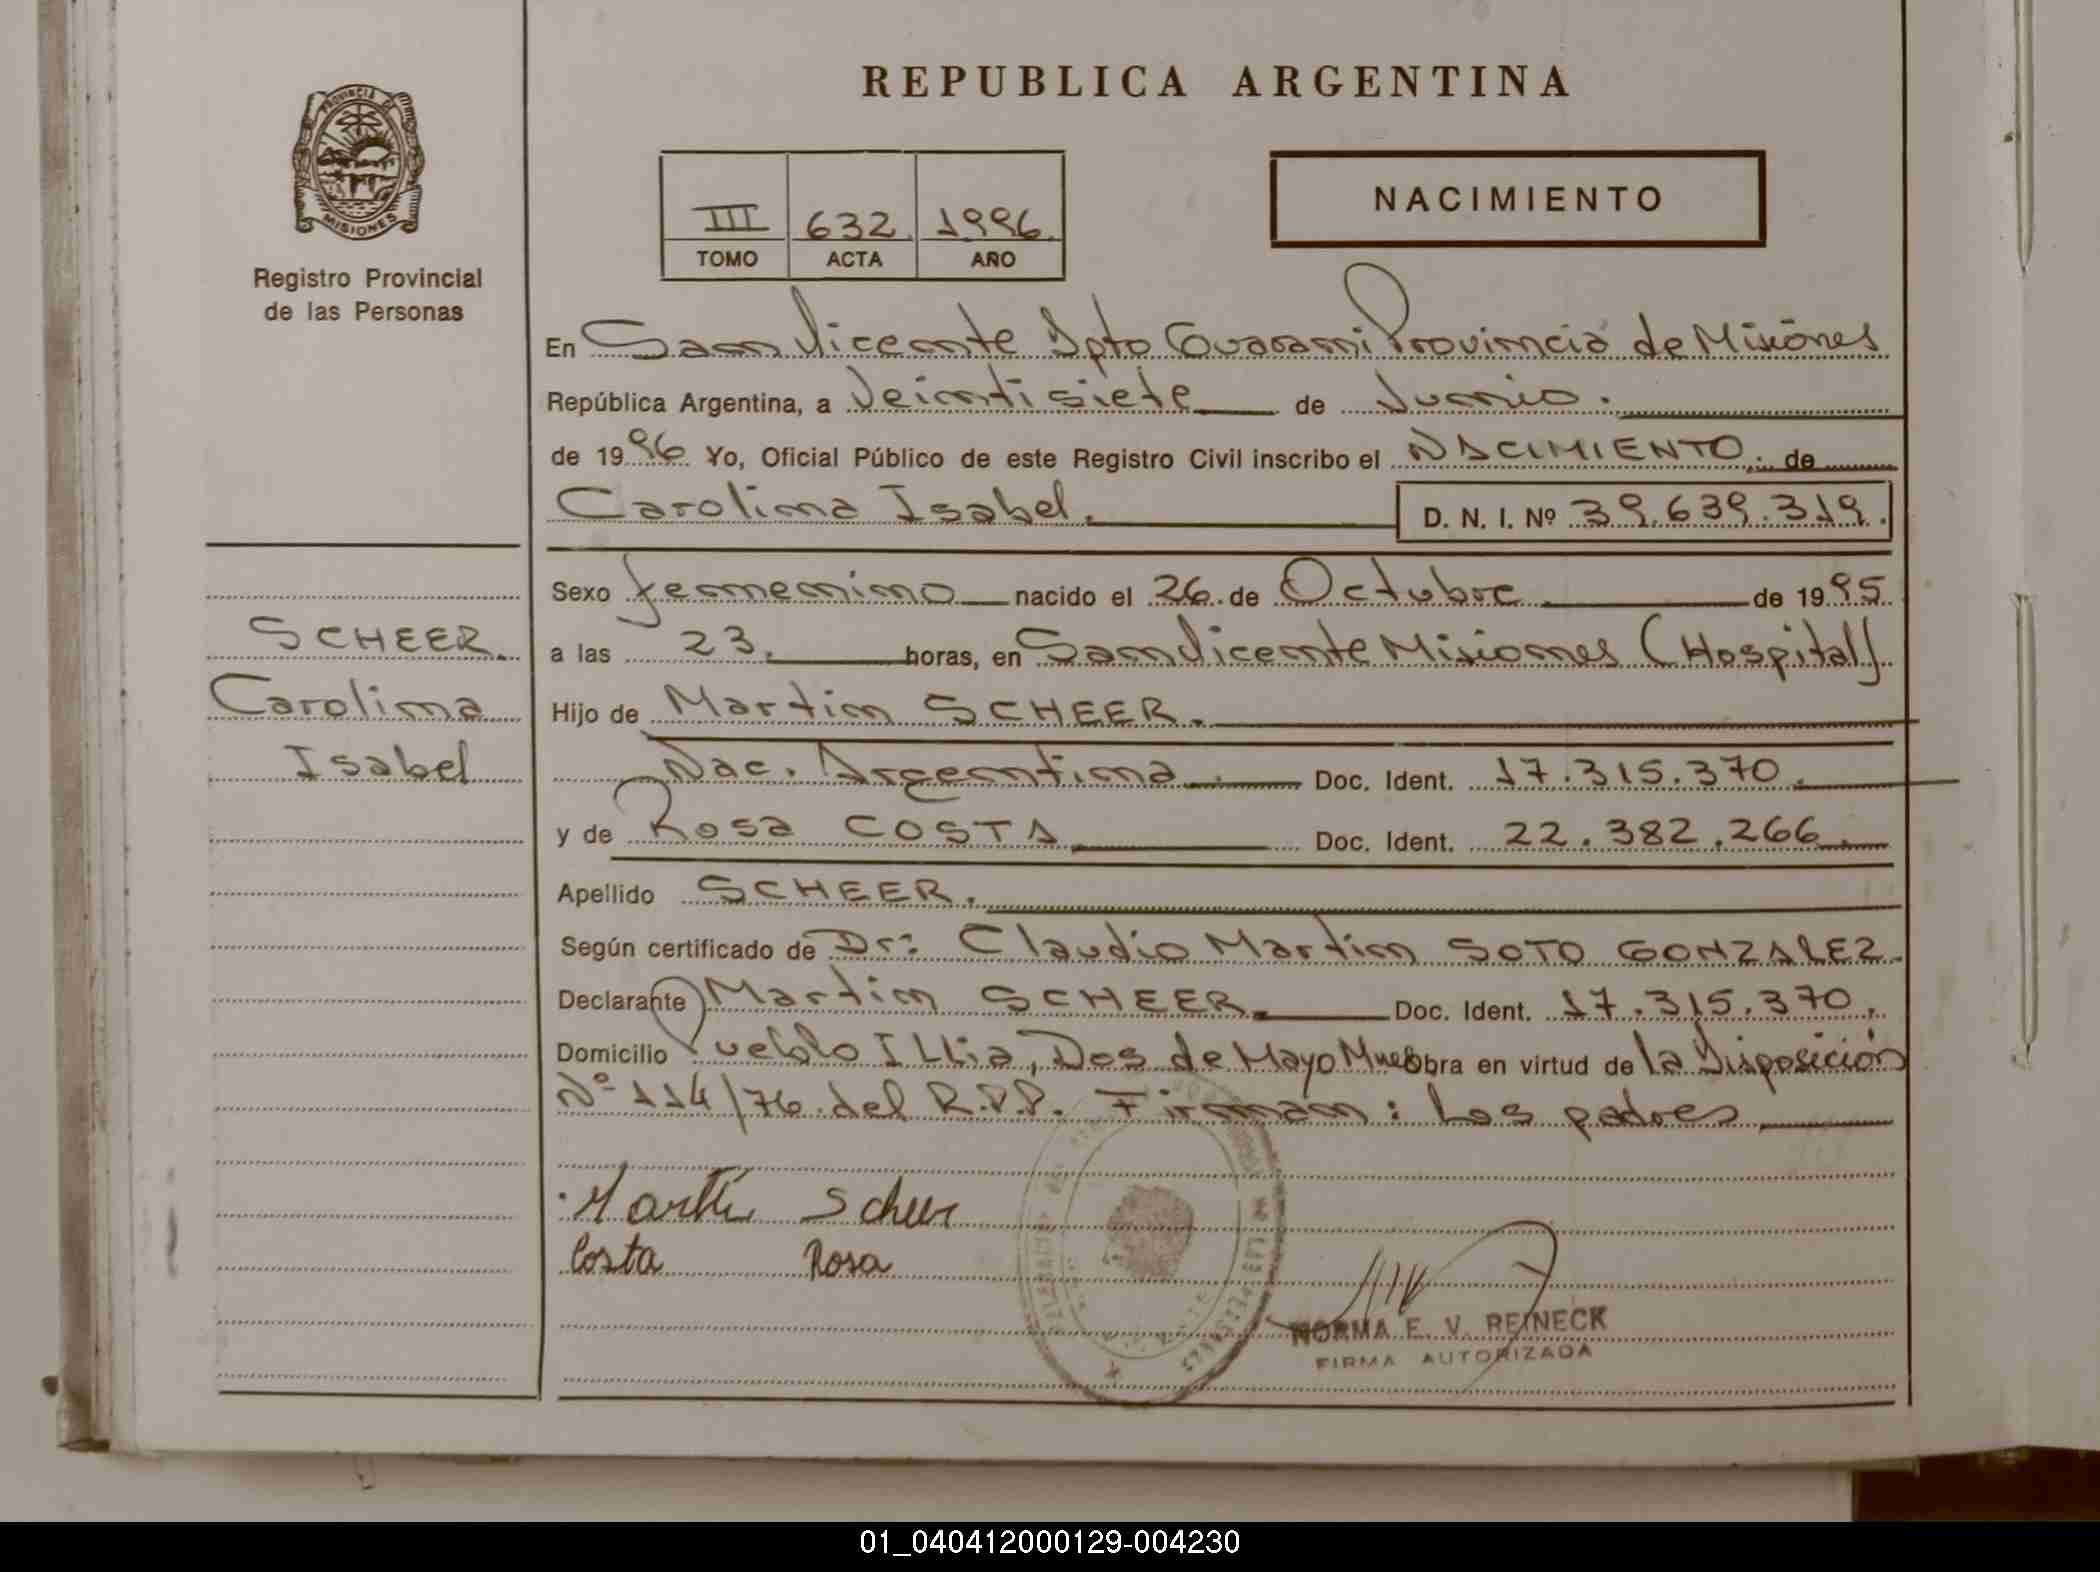 REPUBLICA ARGENTINA
PROVINCIA DE
MISIONES
Registro Provincial
de las Personas
III 632. 1996.
TOMO ACTA AÑO
NACIMIENTO
En San Vicente Dpto Guarani Provincia de Misiones
República Argentina, a Veintisiete de Junio.
de 1996 Yo, Oficial Público de este Registro Civil inscribo el NACIMIENTO. de
Carolina Isabel. D. N. I. Nº 39.639.319.
Sexo femenino nacido el 26 de Octubre de 1995
a las 23. horas, en San Vicente Misiones (Hospital)
Hijo de Martin SCHEER.
Nac. Argentina. Doc. Ident. 17.315.370.
y de Rosa COSTA Doc. Ident. 22.382.266.
Apellido SCHEER.
Según certificado de Dr: Claudio Martin SOTO GONZALEZ.
Declarante Martin SCHEER. Doc. Ident. 17.315.370.
Domicilio Pueblo Illia, Dos de Mayo Mnes Obra en virtud de la Disposición
Nº 114/76 del R.P.P. Firman: Los padres
SCHEER.
Carolina
Isabel
Martin Scheer
Costa Rosa
NORMA E. V. REINECK
FIRMA AUTORIZADA
01_040412000129-004230